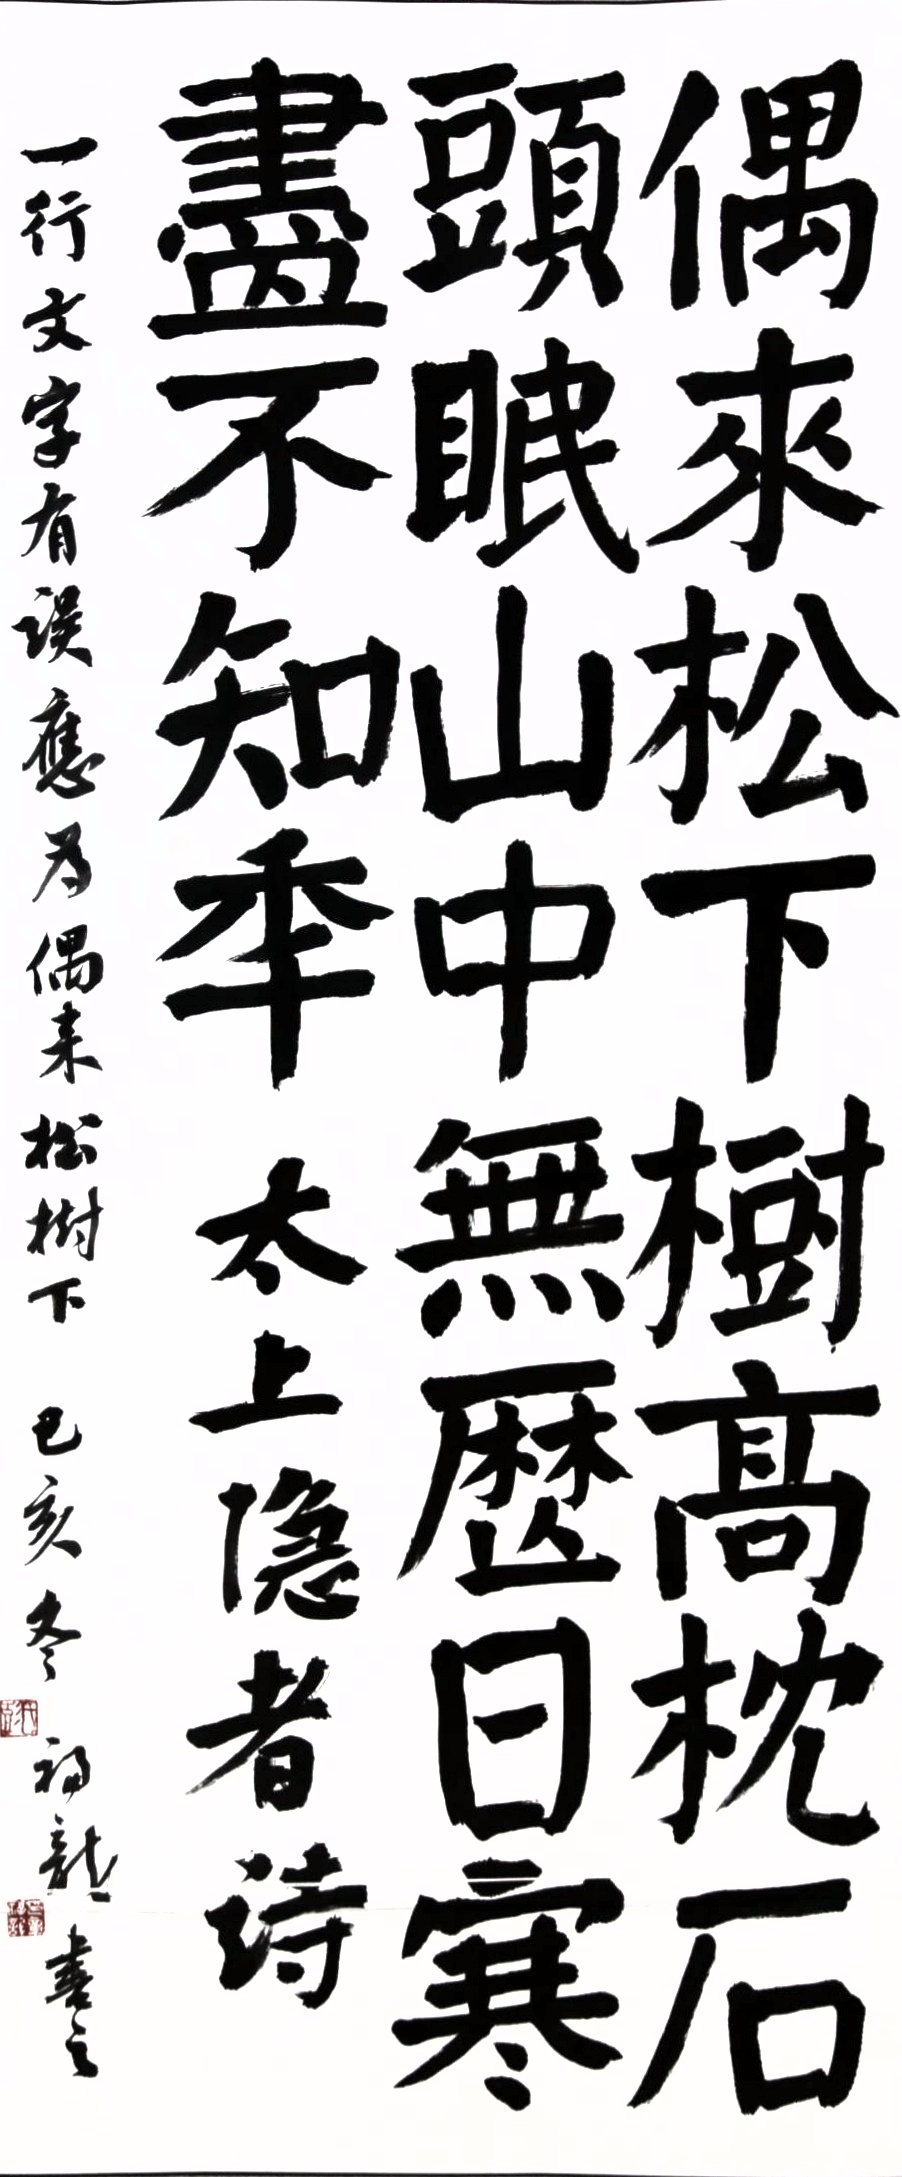 偶來松下樹高枕石
頭眠山中無歷日寒
盡不知年 太上隐者詩
一行文字有误應为偶来松樹下 己亥冬 福龍書之